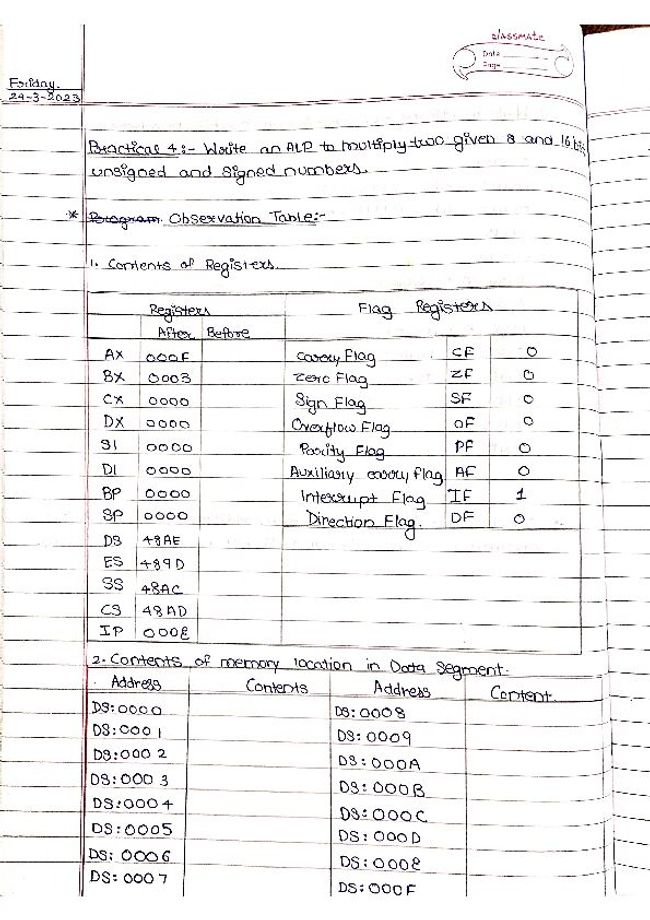 classmate
Date
Page
Friday.
24-3-2023
Practical 4:- Write an ALP to multiply two given 8 and 16 bit
unsigned and signed numbers.
* Program Observation Table:-
1. Contents of Registers.
Registers Flag Registers
After Before
AX 000F Carry Flag CF 0
BX 0003 Zero Flag ZF 0
CX 0000 Sign Flag SF 0
DX 0000 Overflow Flag OF 0
SI 0000 Parity Flag PF 0
DI 0000 Auxiliary carry flag AF 0
BP 0000 Interrupt Flag IF 1
SP 0000 Direction Flag. DF 0
DS 48AE
ES 489D
SS 48AC
CS 48AD
IP 000E
2. Contents of memory location in Data Segment.
Address Contents Address Content.
DS:0000 DS:0008
DS:0001 DS:0009
DS:0002 DS:000A
DS:0003 DS:000B
DS:0004 DS:000C
DS:0005 DS:000D
DS:0006 DS:000E
DS:0007 DS:000F